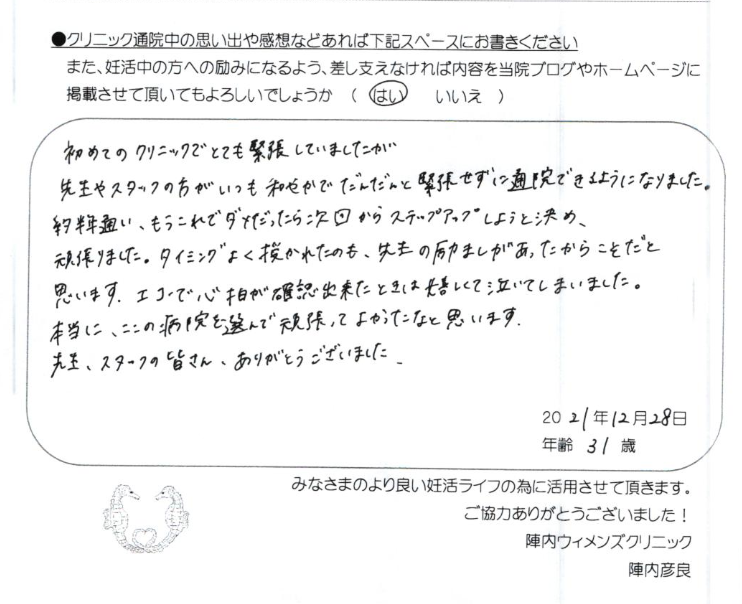 ●クリニック通院中の思い出や感想などあれば下記スペースにお書きください
また、妊活中の方への励みになるよう、差し支えなければ内容を当院ブログやホームページに
掲載させて頂いてもよろしいでしょうか ( はい いいえ )
初めてのクリニックでとても緊張していましたが
先生やスタッフの方がいつも和やかでだんだんと緊張せずに通院できるようになりました。
約半年通い、もうこれでダメだったら次回からステップアップしようと決め、
頑張りました。タイミングよく授かれたのも、先生の励ましがあったからことだと
思います。エコーで心拍が確認出来たときは嬉しくて泣いてしまいました。
本当に、ここの病院を選んで頑張ってよかったなと思います。
先生、スタッフの皆さん、ありがとうございました。
2021年12月28日
年齢 31 歳
みなさまのより良い妊活ライフの為に活用させて頂きます。
ご協力ありがとうございました！
陣内ウィメンズクリニック
陣内彦良